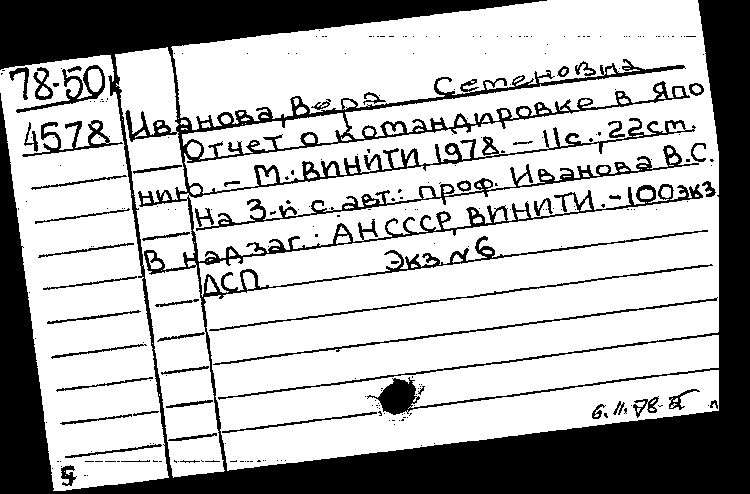 78-50к
4578
Иванова, Вера Семеновна
Отчет о командировке в Япо
нию. – М.: ВИНИТИ, 1978. – 11с.; 22см.
На 3-й с. авт.: проф. Иванова В.С.
В надзаг.: АН СССР, ВИНИТИ. – 100экз
ДСП. Экз. № 6
6.11.78
5